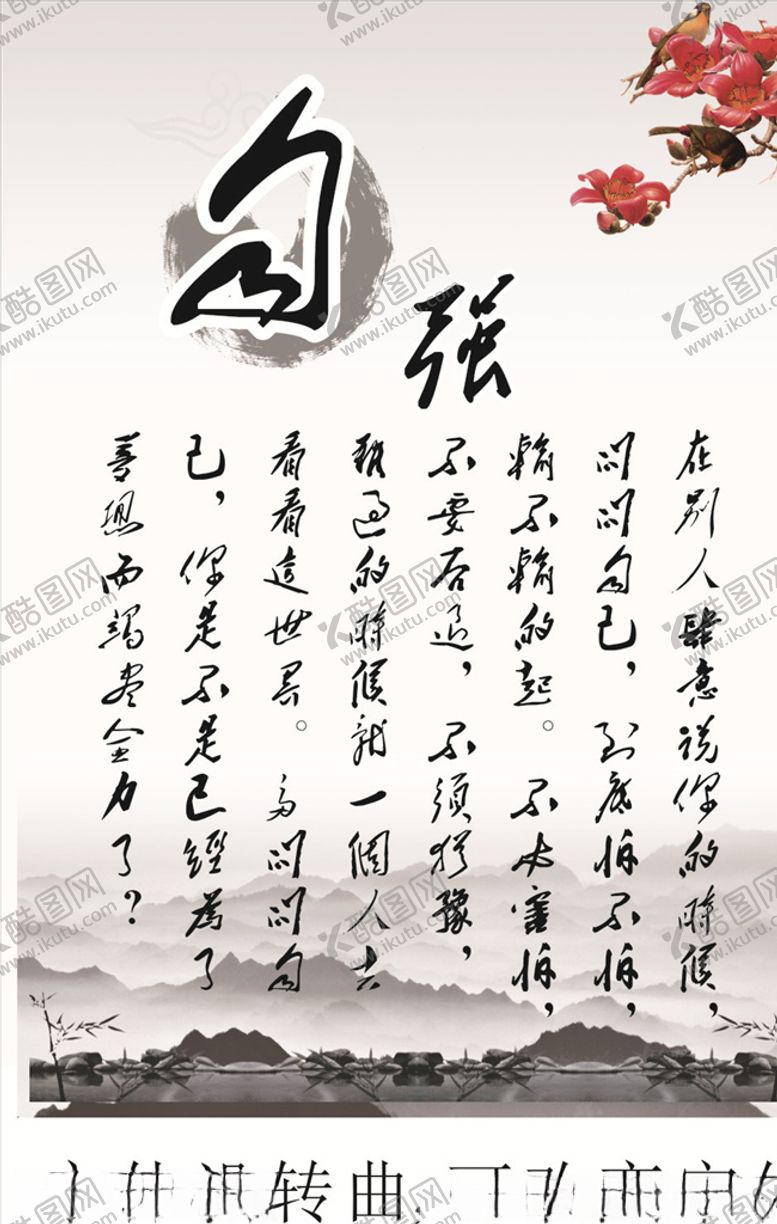 自强
在别人肆意說你的時候，
问问自己，到底怕不怕，
輸不輸的起。不必害怕，
不要后退，不須猶豫，
難過的時候就一個人去
看看這世界。多问问自
己，你是不是已經為了
夢想而竭盡全力了？
转曲
酷图网
www.ikutu.com